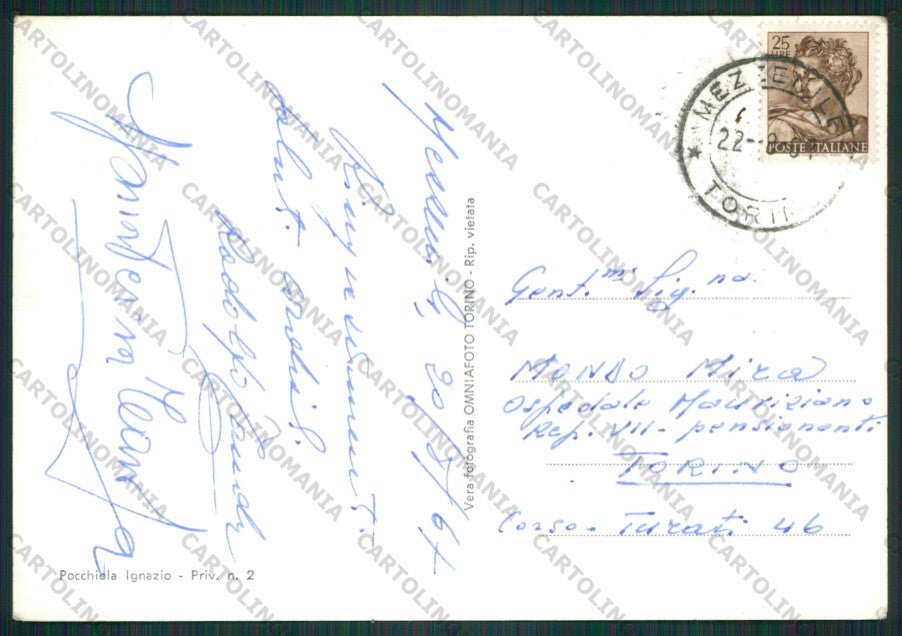 Mezzenile, 20/8/67
Ringraziamenti
saluti cordiali.
Rodolfo
Vera fotografia OMNIAFOTO TORINO - Rip. vietata
Pocchiola Ignazio - Priv. n. 2
25
LIRE
POSTE ITALIANE
MEZZENILE
22-8-67
TORI
Gent.ma Sig.na
MONDO Mira
Ospedale Mauriziano
Rep. VII - pensionanti
TORINO
Corso - Turati 46
CARTOLINOMANIA